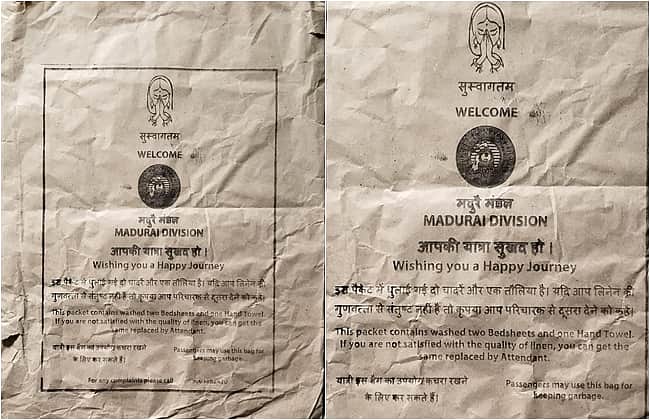 सुस्वागतम
WELCOME
मदुरै मंडल
MADURAI DIVISION
आपकी यात्रा सुखद हो ।
Wishing you a Happy Journey
इस पैकेट में धुलाई गई दो चादरें और एक तौलिया है। यदि आप लिनेन की
गुणवत्ता से संतुष्ट नहीं है तो कृपया आप परिचारक से दूसरा देने को कहें।
This packet contains washed two Bedsheets and one Hand Towel.
If you are not satisfied with the quality of linen, you can get the
same replaced by Attendant.
यात्री इस बैग का उपयोग कचरा रखने
के लिए कर सकते हैं।
Passengers may use this bag for
keeping garbage.
For any complaints please call
सुस्वागतम
WELCOME
मदुरै मंडल
MADURAI DIVISION
आपकी यात्रा सुखद हो ।
Wishing you a Happy Journey
इस पैकेट में धुलाई गई दो चादरें और एक तौलिया है। यदि आप लिनेन की
गुणवत्ता से संतुष्ट नहीं है तो कृपया आप परिचारक से दूसरा देने को कहें।
This packet contains washed two Bedsheets and one Hand Towel.
If you are not satisfied with the quality of linen, you can get the
same replaced by Attendant.
यात्री इस बैग का उपयोग कचरा रखने
के लिए कर सकते हैं।
Passengers may use this bag for
keeping garbage.